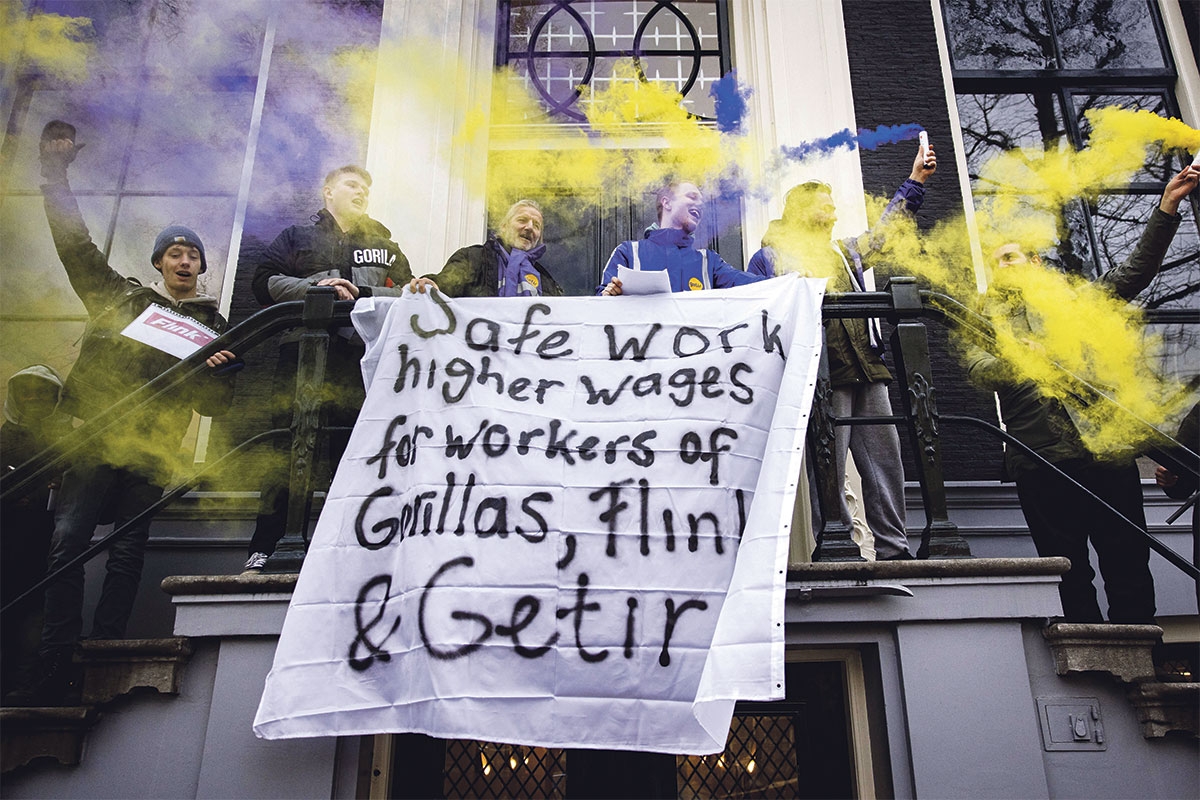 GORIL
Flink
Safe work
higher wages
for workers of
Gorillas, Flink
& Getir